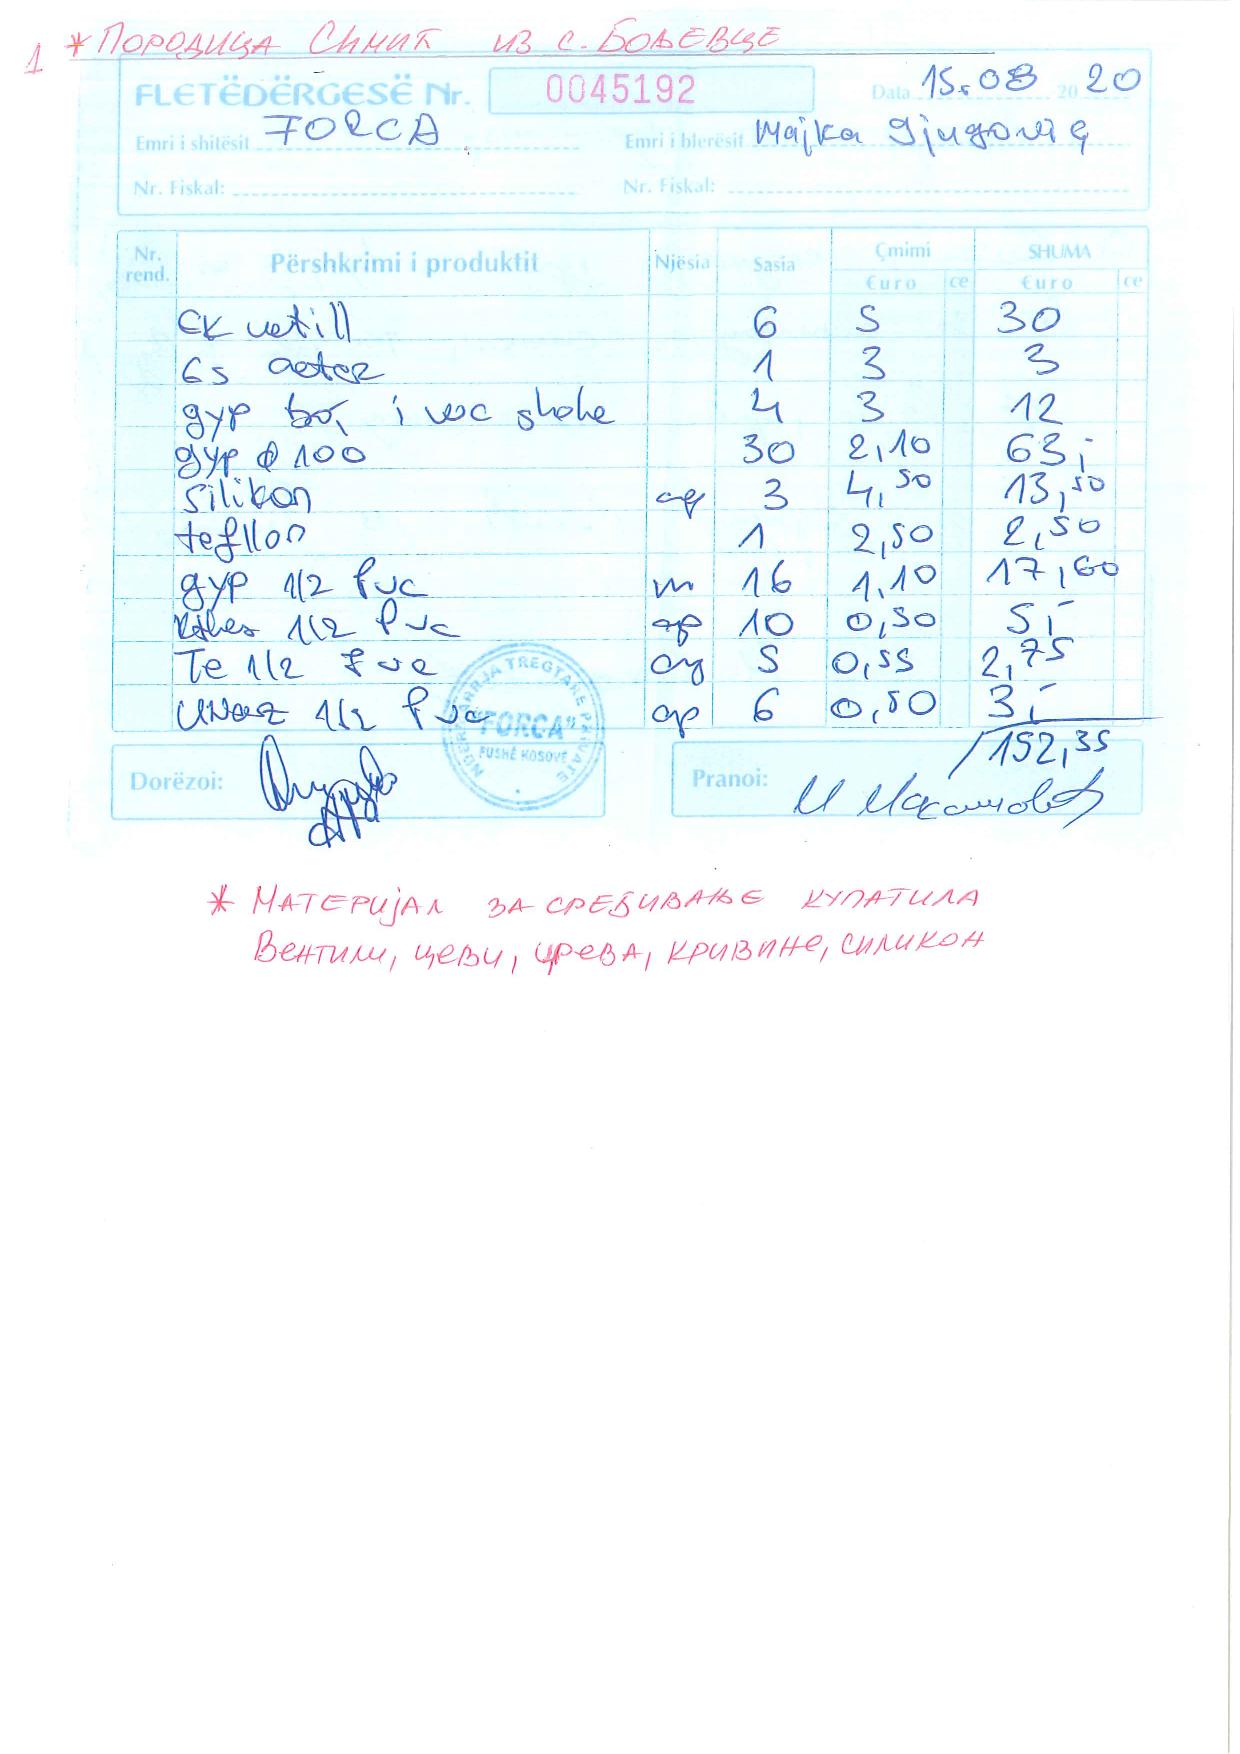 1 * ПОРОДИЦА СИМИЋ ИЗ С. БОЋЕВЦЕ
FLETËDËRGESË Nr. 0045192 Data 15.08 20 20
Emri i shitësit FORCA Emri i blerësit Majka
Nr. Fiskal: Nr. Fiskal:
Nr. rend. Përshkrimi i produktit Njësia Sasia Çmimi SHUMA
Euro ce Euro ce
6 5 30
1 3 3
gyp i 4 3 12
gyp ф 100 30 2,10 63,-
Silikon 3 4,50 13,50
tefllon 1 2,50 2,50
gyp 1/2 Pvc m 16 1,10 17,60
1/2 Pvc 10 0,50 5,-
Te 1/2 Pvc 5 0,55 2,75
UNaz 1/2 Pvc 6 0,50 3,-
152,35
NDERMARRJA TREGTARE PRIVATE "FORCA" FUSHË KOSOVË
Dorëzoi: Pranoi:
* МАТЕРИЈАЛ ЗА СРЕЂИВАЊЕ КУПАТИЛА
ВЕНТИЛИ, ЦЕВИ, ЦРЕВА, КРИВИНЕ, СИЛИКОН